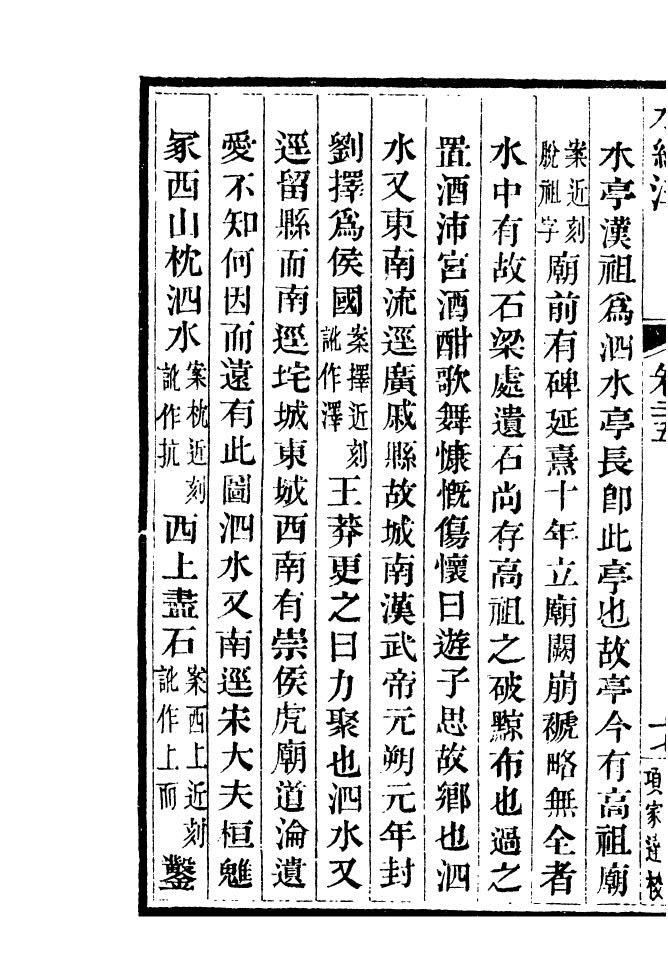 水經注
卷二十五
項家達校
水亭漢祖爲泗水亭長卽此亭也故亭今有高祖廟
案近刻
脫祖字
廟前有碑延熹十年立廟闕崩褫略無全者
水中有故石梁處遺石尚存高祖之破黥布也過之
置酒沛宮酒酣歌舞慷慨傷懷曰遊子思故鄉也泗
水又東南流逕廣戚縣故城南漢武帝元朔元年封
劉擇爲侯國
案擇近刻
訛作澤
王莽更之曰力聚也泗水又
逕留縣而南逕垞城東城西南有崇侯虎廟道淪遺
愛不知何因而遠有此圖泗水又南逕宋大夫桓魋
冢西山枕泗水
案枕近刻
訛作抗
西上盡石
案西上近刻
訛作上而
鑿